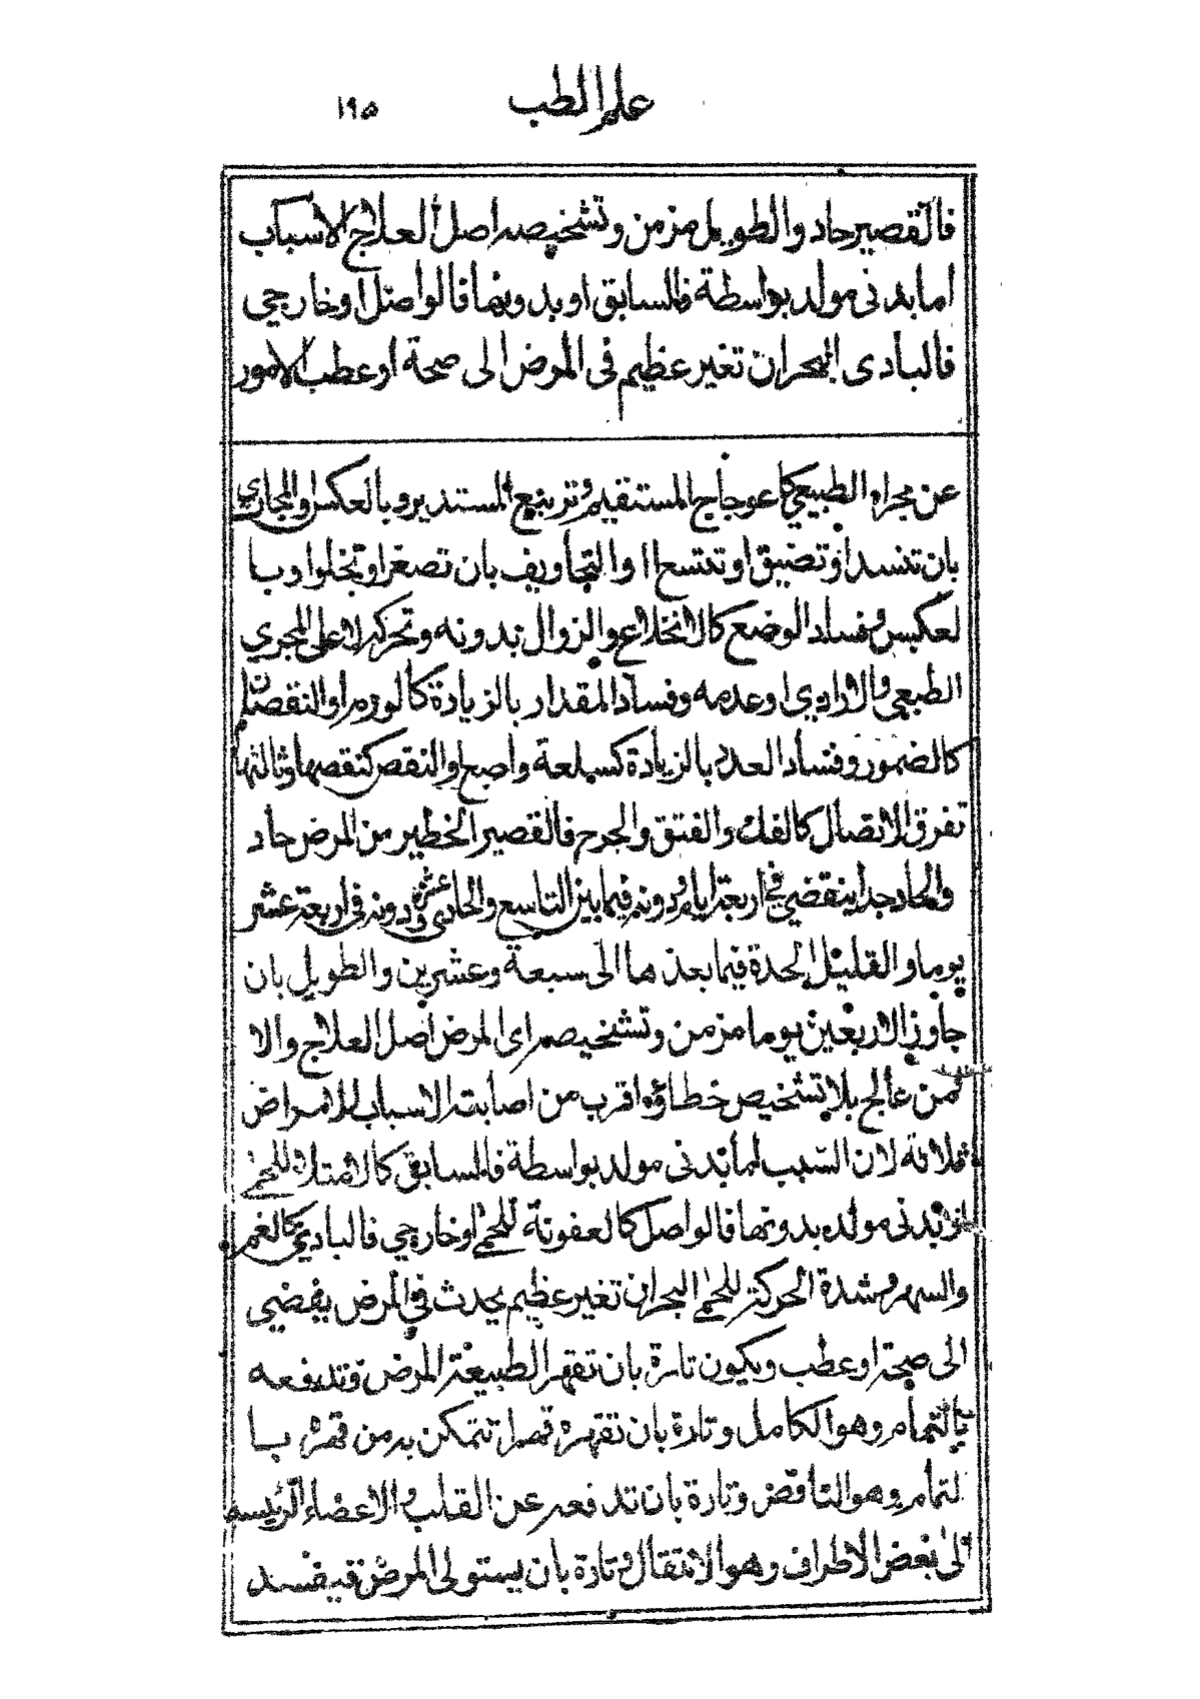 علم الطب ١٩٥
فالقصير حاد والطويل مزمن وتشخيصه اصل العلاج الاسباب
اما بدنى مولد بواسطة فالسابق او بدونها فالواصل او خارجي
فالبادى البحران تغير عظيم فى المرض الى صحة او عطب الامور
عن مجراه الطبيعي كاعوجاج المستقيم وتربيع المستدير وبالعكس والمجاري
بان تنسد او تضيق او تتسع اا والتجاويف بان تصغر او تخلوا وبا
لعكس وفساد الوضع كالانخلاع والزوال بدونه وتحركه لا على المجري
الطبعي والارادي او عدمه وفساد المقدار بالزيادة كالورم او النقصان
كالضمور وفساد العدد بالزيادة كسلعة واصبع والنقص كنقصها وثالثها
تفرق الاتصال كالفك والفتق والجرح فالقصير الخطير من المرض حاد
والحاد جدا ينقضي في اربعة ايام ودونه فيما بين التاسع والحادى عشرة ودونه فى اربعة عشر
يوما والقليل الحدة فيما بعد ها الى سبعة وعشرين والطويل بان
جاوز الاربعين يوما مزمن وتشخيصه اى المرض اصل العلاج والا
فمن عالج بلا تشخيص خطاؤه اقرب من اصابته الاسباب للامراض
ثلاثة لان السبب اما بدنى مولد بواسطة فالسابق كالامتلاء للحمى
او بدنى مولده بدونها فالواصل كالعفونة للحمى او خارجي فالبادي كالغم
والسهر وشدة الحركة للحمى البحران تغير عظيم يحدث في المرض يفضي
الى صحة او عطب ويكون تارة بان تقهر الطبيعة المرض وتدفعه
بالتمام وهو الكامل وتارة بان تقهره قهرا تتمكن به من قهره با
لتمام وهو الناقص وتارة بان تدفعه عن القلب والاعضاء الرئيسه
الى بعض الاطراف وهو الانتقال وتارة بان يستولى المرض فيفسد